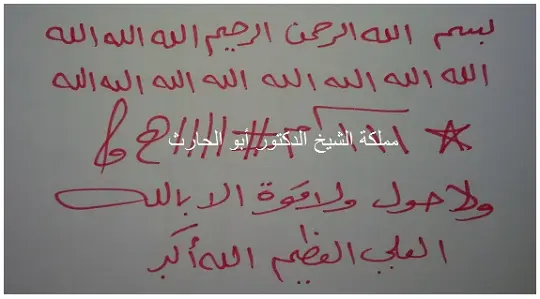 بسم الله الرحمن الرحيم الله الله الله
الله الله الله الله الله الله الله الله
مملكة الشيخ الدكتور أبو الحارث
ولا حول ولا قوة الا بالله
العلي العظيم الله أكبر